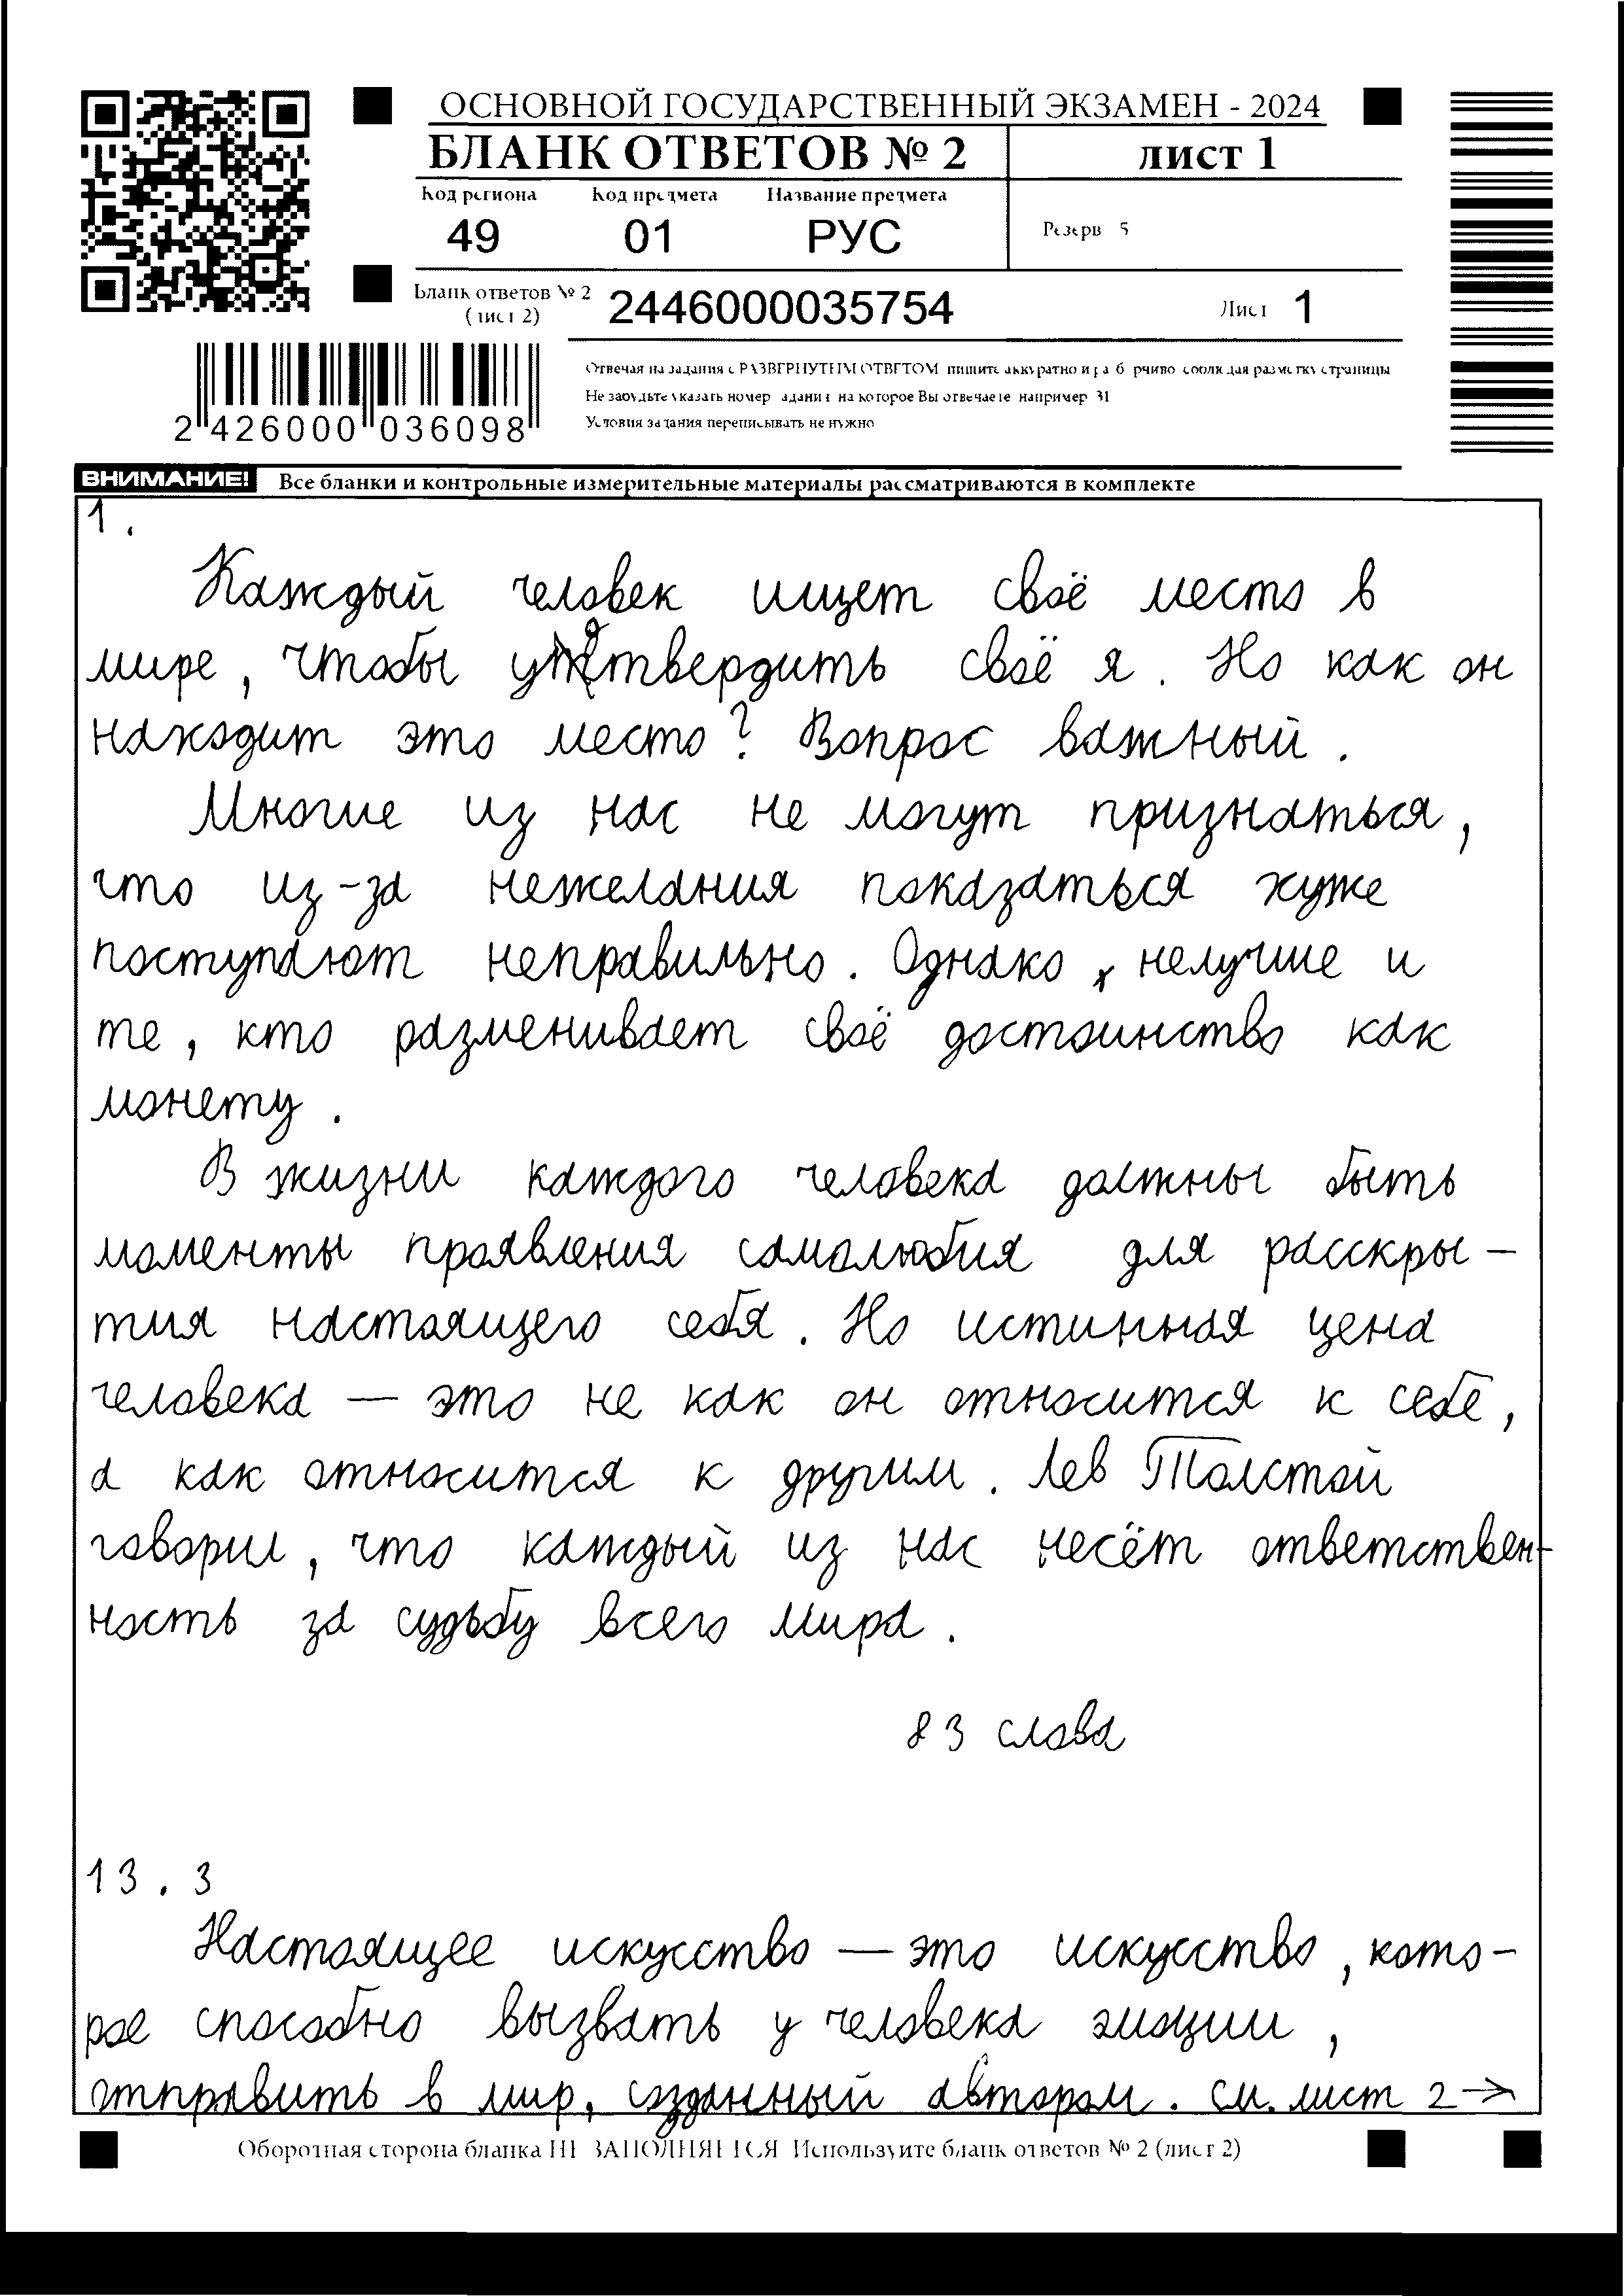 ОСНОВНОЙ ГОСУДАРСТВЕННЫЙ ЭКЗАМЕН - 2024
БЛАНК ОТВЕТОВ № 2
лист 1
Код региона Код предмета Название предмета
49 01 РУС
Резерв 5
Бланк ответов № 2 (лист 2) 2446000035754
Лист 1
2 426000 036098
Отвечая на задания с РАЗВЕРНУТЫМ ОТВЕТОМ пишите аккуратно и разборчиво соблюдая разметку страницы
Не забудьте указать номер задания на которое Вы отвечаете например 31
Условия задания переписывать не нужно
ВНИМАНИЕ! Все бланки и контрольные измерительные материалы рассматриваются в комплекте
1.
Каждый человек ищет своё место в
мире, чтобы утвердить своё я. Но как он
находит это место? Вопрос важный.
Многие из нас не могут признаться,
что из-за нежелания показаться хуже
поступают неправильно. Однако, нелучше и
те, кто разменивает своё достоинство как
монету.
В жизни каждого человека должны быть
моменты проявления самолюбия для расскры-
тия настоящего себя. Но истинная цена
человека — это не как он относится к себе,
а как относится к другим. Лев Толстой
говорил, что каждый из нас несёт ответствен-
ность за судьбу всего мира.
83 слова
13.3
Настоящее искусство — это искусство, кото-
рое способно вызвать у человека эмоции,
отправить в мир, созданный автором. см. лист 2 →
Оборотная сторона бланка НЕ ЗАПОЛНЯЕТСЯ Используйте бланк ответов № 2 (лист 2)